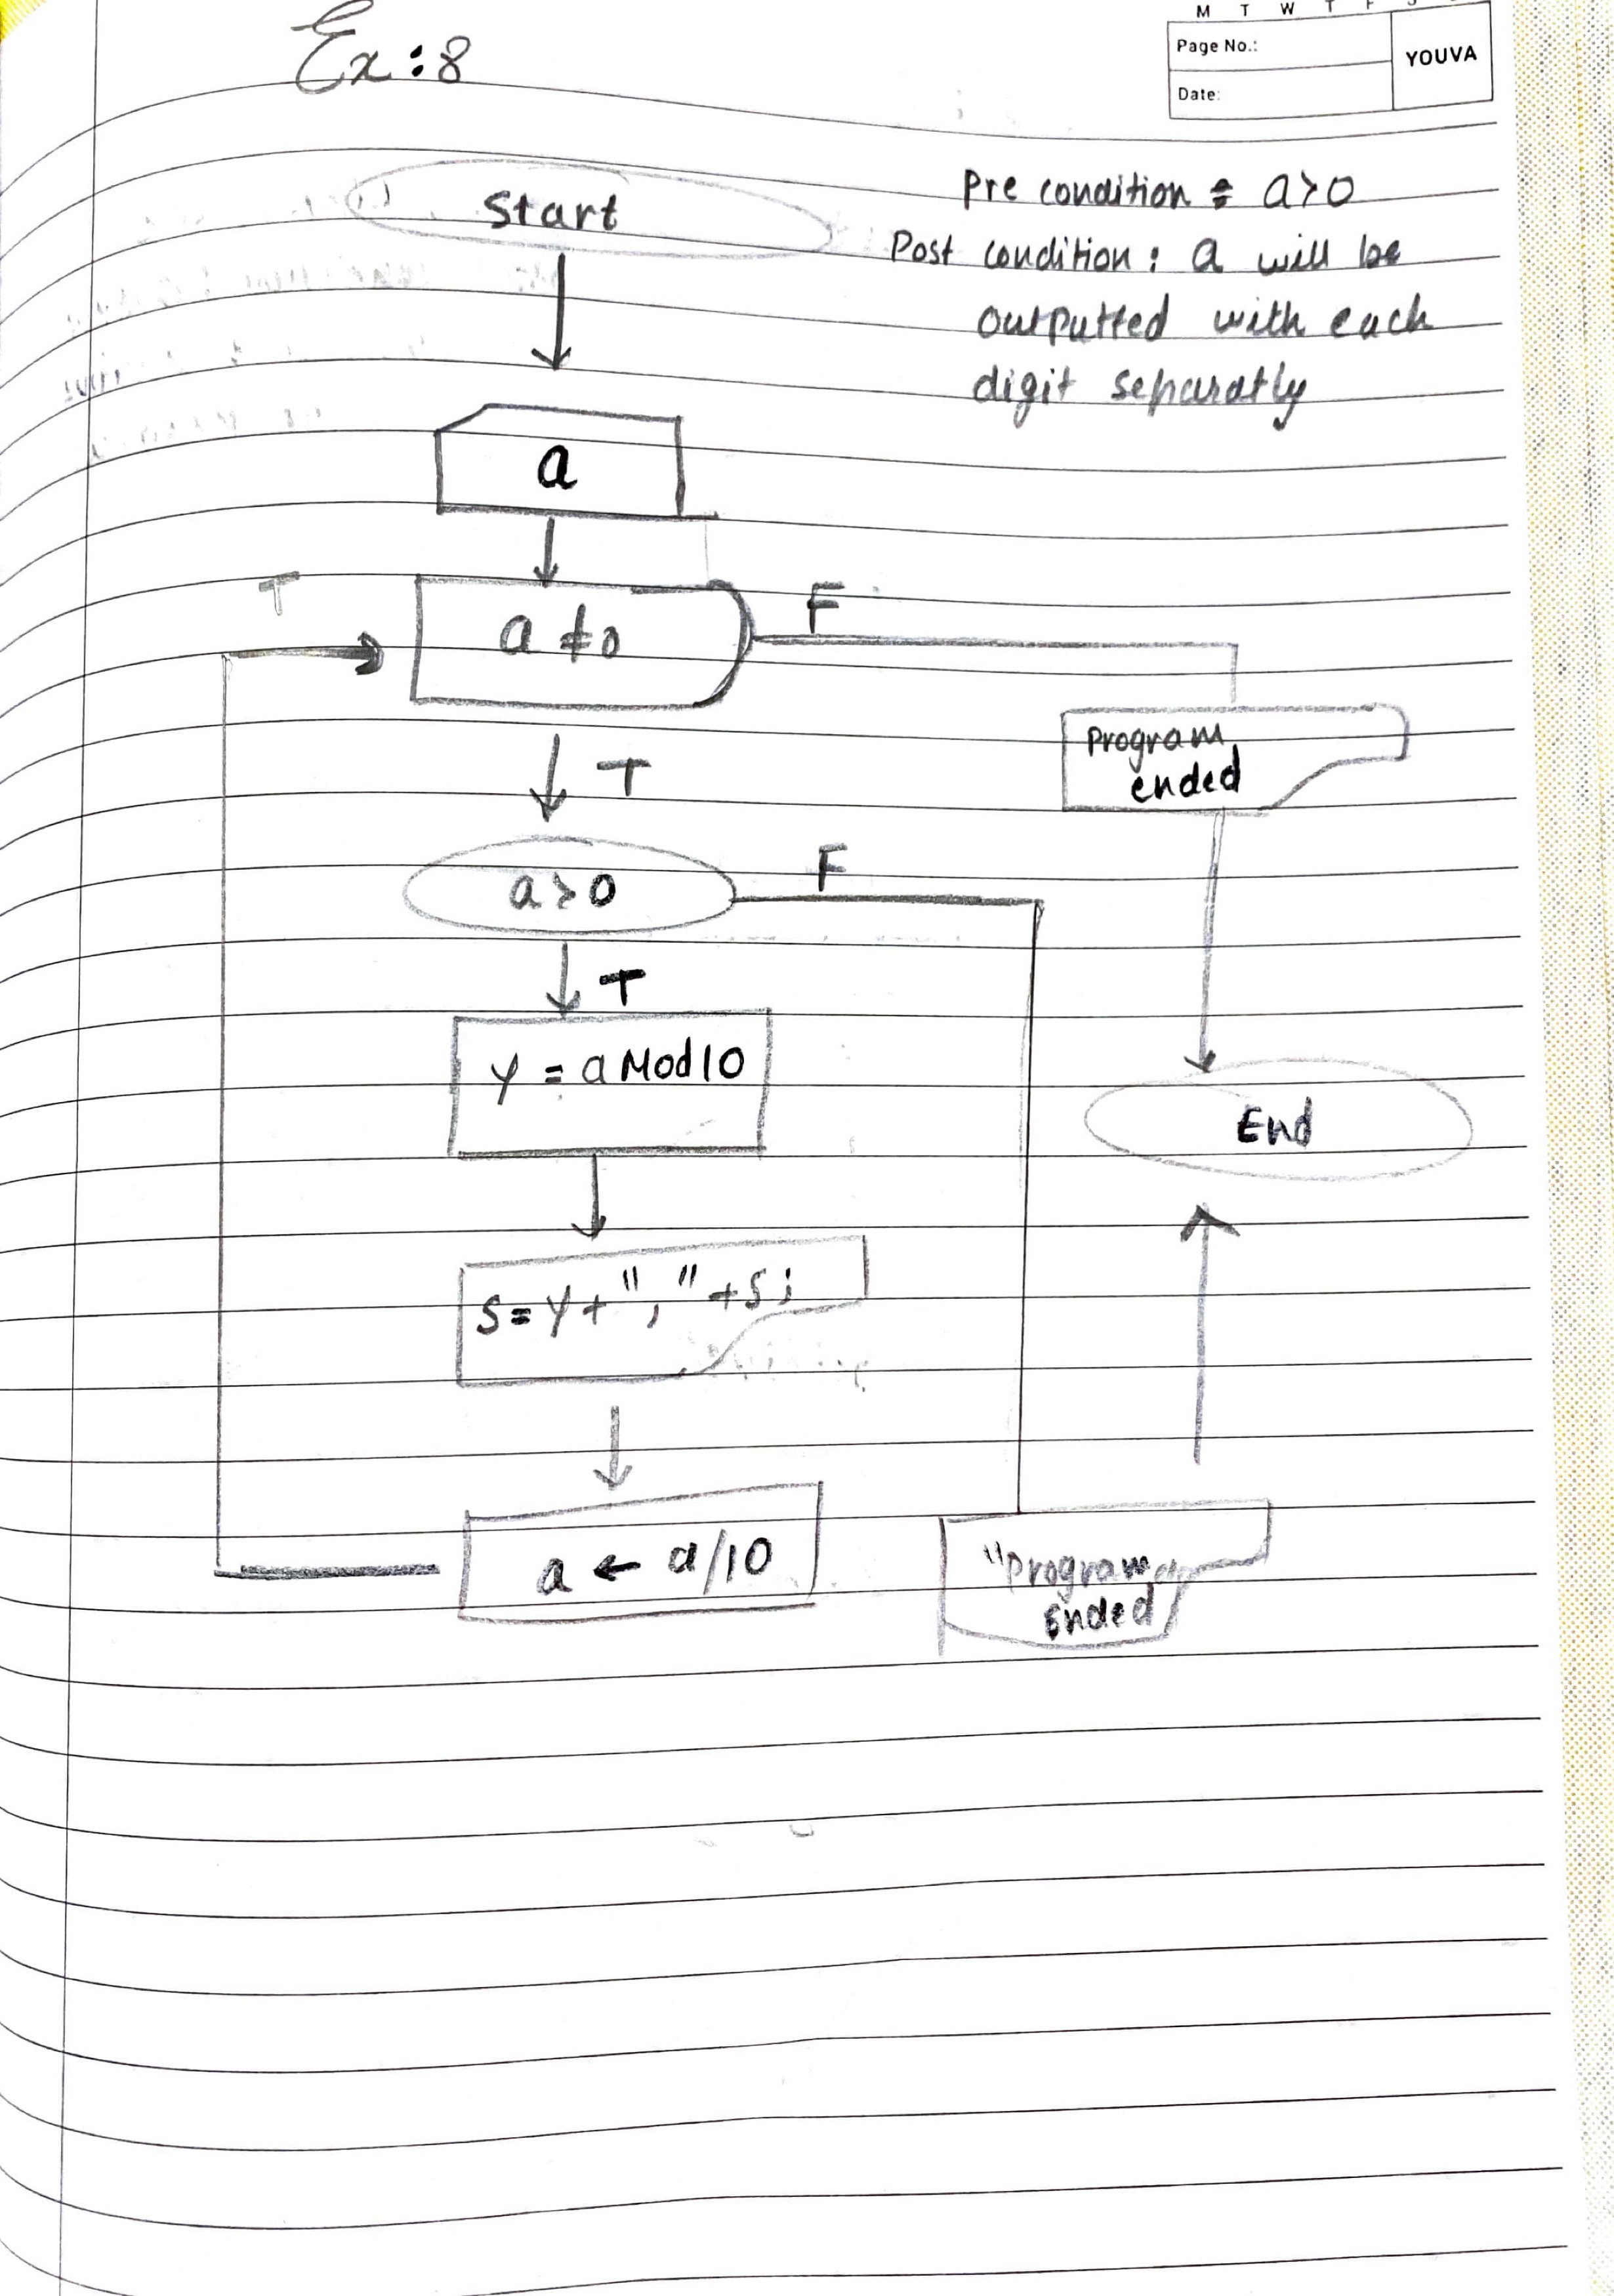 M T W T F S
Page No.:
YOUVA
Date:
Ex:8
Start
Pre condition : a>0
Post condition : a will be
outputted with each
digit separatly
a
T
a ≠ 0
F
Program
ended
T
a>0
F
T
y = a Mod 10
End
S = y + "," + S;
a ← a/10
"Program
Ended